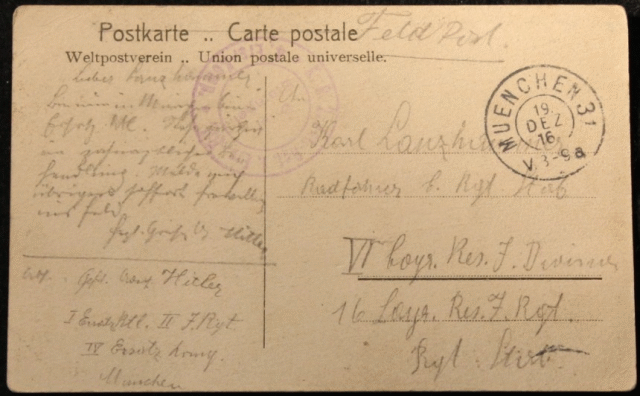 Postkarte .. Carte postale
Feld Post.
Weltpostverein .. Union postale universelle.
Lieber Lanzhammer
bin nun in München beim
Ersatz Btl.
in zahnärztlicher
handlung. Melde mich
übrigens sofort freiwillig
ins Feld.
Hitler
MUENCHEN 31
19.
DEZ
16.
V. 8-9 a
An
Karl Lanzhammer
Radfahrer b. Rgt Stab
VI bayr. Res. I. Division
16 bayr. Res. I. Rgt.
Rgt. Stab
Abs. Gefr. Adolf Hitler
I Ersatzbtl. II I. Rgt
IV Ersatz Komp.
München